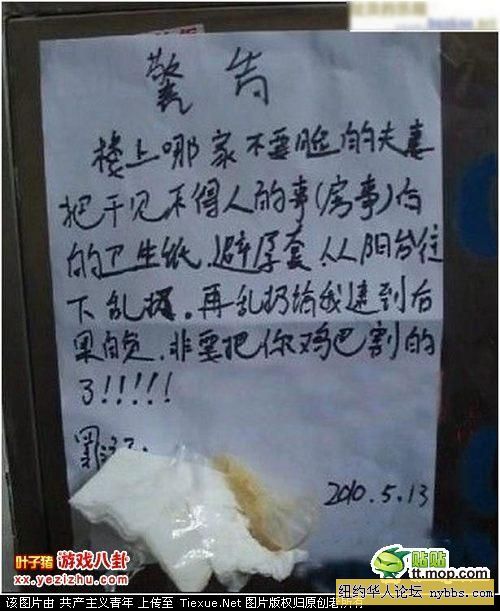 警告
楼上哪家不要脸的夫妻
把干见不得人的事(房事)后
的卫生纸.避孕套.从阳台往
下乱扔。再乱扔给我逮到后
果自负.非要把你鸡巴割的
了!!!!!
2010.5.13
叶子猪 游戏八卦
xx.yezizhu.com
贴贴
tt.mop.com
纽约华人论坛 nybbs.com
该图片由 共产主义青年 上传至 Tiexue.Net 图片版权归原创者所有